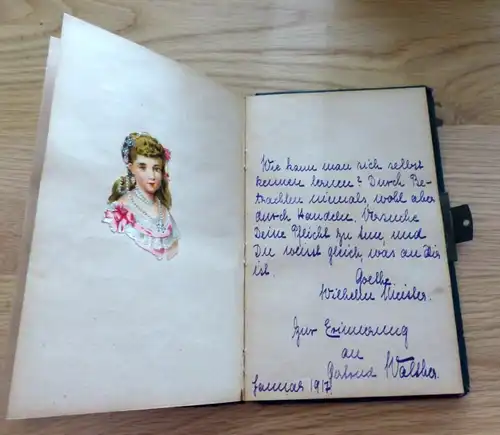 Wie kann man sich selbst
kennen lernen? Durch Be-
trachten niemals wohl aber
durch Handeln. Versuche
Deine Pflicht zu tun, und
Du weist gleich, was an Dir
ist.
Goethe
Wilhelm Meister.
Zur Erinnerung
an
Walther
Januar 1917